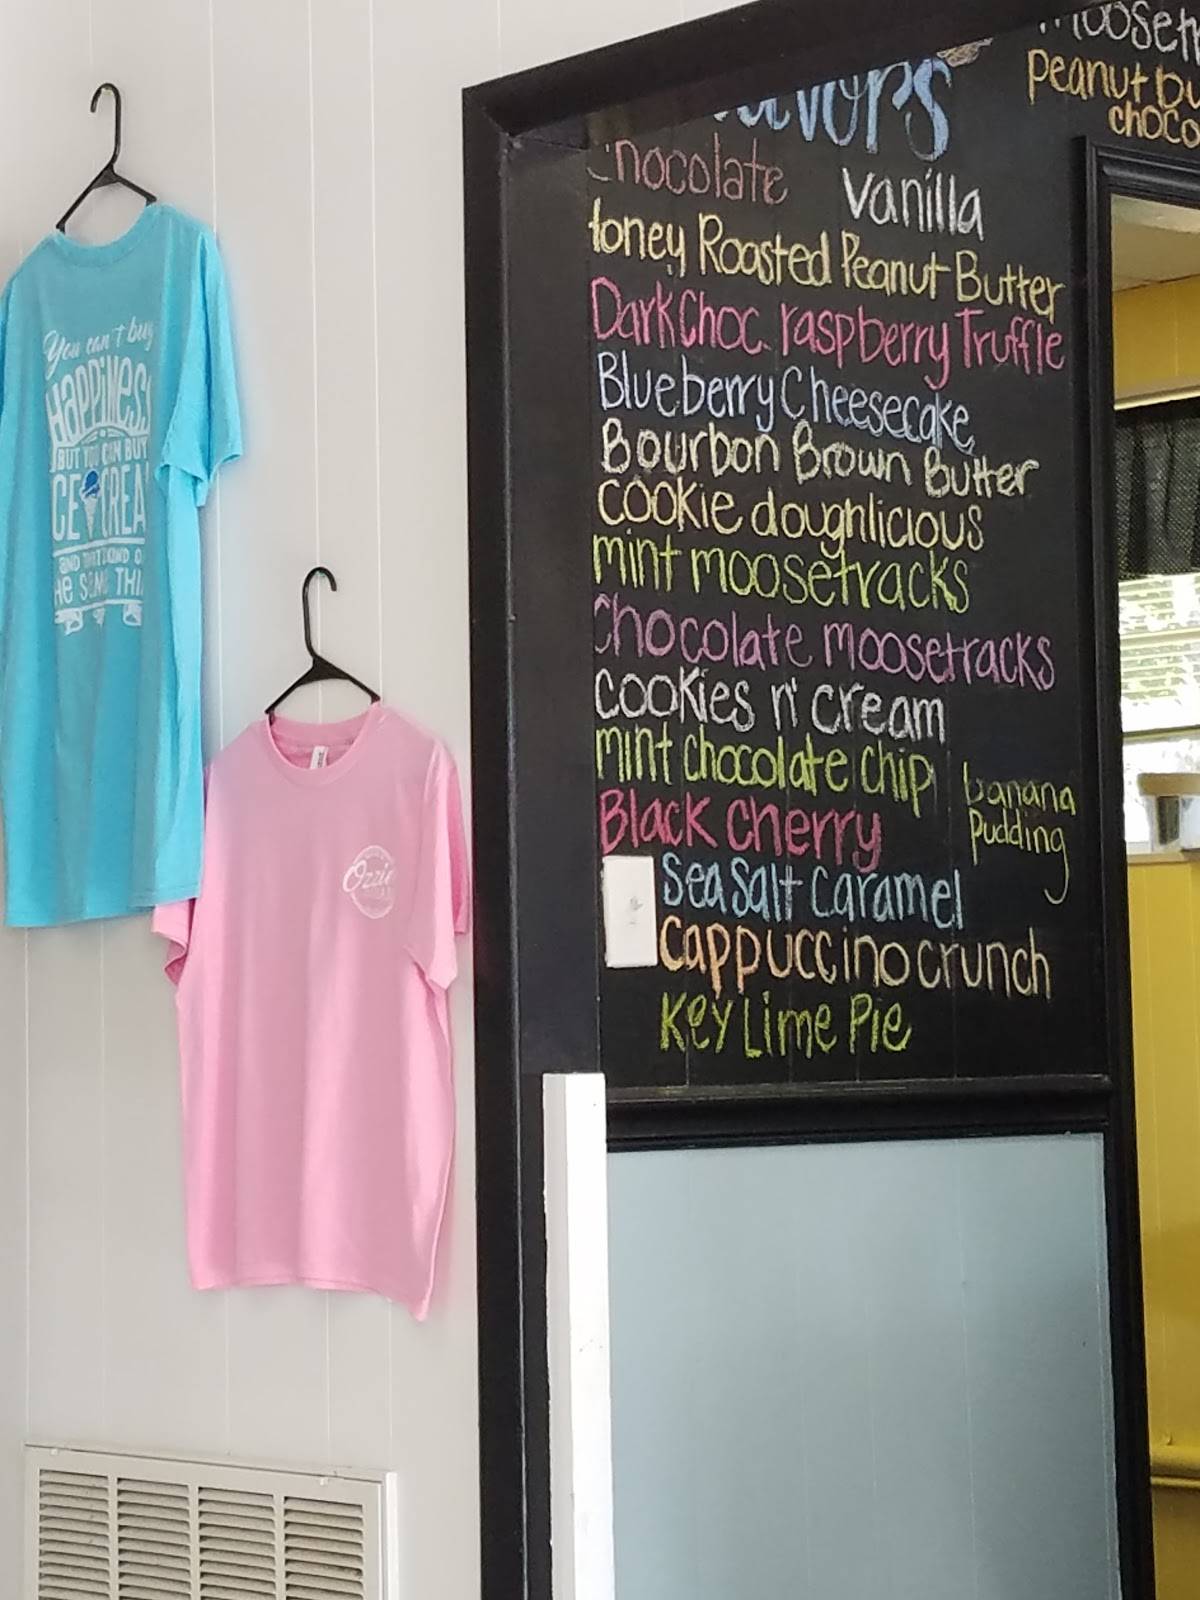 You can't buy
Happiness
BUT YOU CAN BUY
ICE CREAM
AND THAT'S KIND OF
THE SAME THING
Ozzie
Flavors
Peanut
choco
chocolate
vanilla
Honey Roasted Peanut Butter
Dark Choc. raspberry Truffle
Blueberry Cheesecake
Bourbon Brown Butter
cookie doughlicious
mint moosetracks
chocolate moosetracks
cookies n' cream
mint chocolate chip
banana
Pudding
Black Cherry
Sea Salt Caramel
Cappuccino crunch
Key Lime Pie